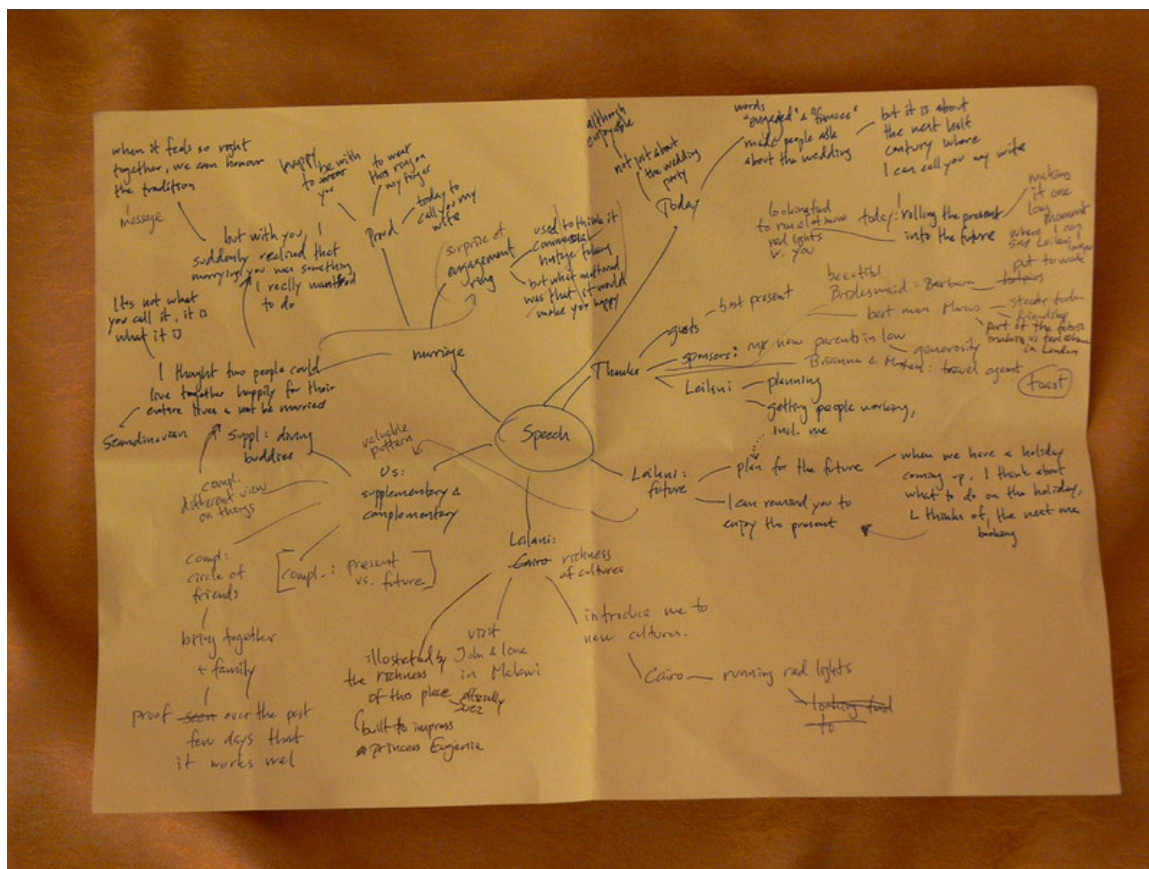 when it feels so right
together, we can honour
the tradition
message
but with you, I
suddenly realized that
marrying you was something
I really wanted
to do
It's not what
you call it, it is
what it is
I thought two people could
live together happily for their
entire lives & not be married
Scandinavian
happy
to be with
you
to wear
this ring on
my finger
Proud
today to
call you my
wife
surprise of
engagement
ring
used to think it
commercial
hostage taking
but what mattered
was that it would
make you happy
marriage
although
enjoyable
not just about
the wedding
party
Today
words
"engaged" & "fiancee"
made people ask
about the wedding
but it is about
the next half
century where
I can call you my wife
looking fwd
to run a lot more
red lights
w. you
today: rolling the present
into the future
makes
it one
long
moment
where I say
Leilani
Thanks
guests
best present
beautiful
Bridesmaid: Barbara
best man Marcus
friendship
part of the fabric
in London
sponsors: my new parents in law
generosity
travel agent
toast
Leilani
planning
getting people working,
incl. me
Speech
Leilani:
future
plan for the future
when we have a holiday
coming up, I think about
what to do on the holiday,
L thinks of the next one
booking
I can remind you to
enjoy the present
valuable
pattern
Us:
supplementary &
complementary
suppl: diving
buddies
compl.
different view
on things
compl:
circle of
friends
being together
+ family
proof seen over the past
few days that
it works well
[compl.: present
vs. future]
Leilani:
Cairo richness
of cultures
illustrated by
the richness
of this place
built to impress
Princess Eugenie
visit
John & Ione
in Malawi
introduce me to
new cultures.
Cairo
running red lights
looking fwd
to